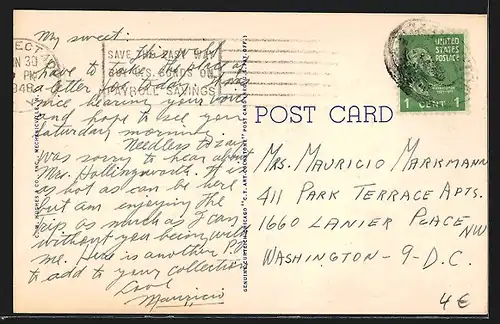 My sweet:
This will
have to take the place of
a letter for today. It was
nice hearing your voice
and hope to see you
Saturday morning.
Needless to say
was sorry to hear about
Mrs. Hollingsworth. It is
as hot as can be here
but am enjoying the
trip as much as I can
without you being with
me. Here is another P.C.
to add to your collection.
Love
Mauricio
JUN 30
PM
1948
SAVE THE EASY WAY
BUY U.S. BONDS ON
PAYROLL SAVINGS
UNITED STATES
POSTAGE
1 CENT 1
POST CARD
Mrs. Mauricio Markmann
411 Park Terrace Apts.
1660 Lanier Place NW
Washington - 9 - D.C.
4 €